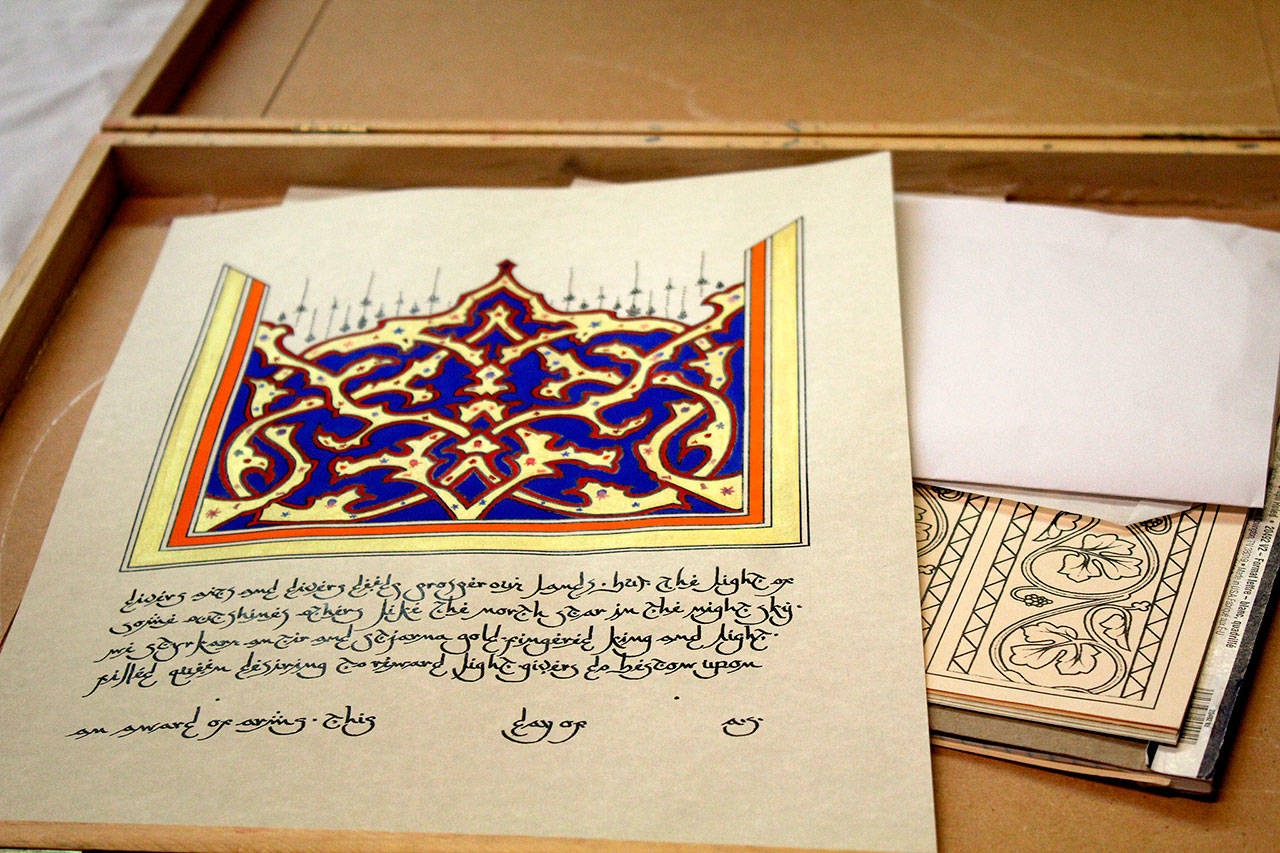 divers arts and divers deeds prosper our lands · but the light of
some outshines others like the north star in the night sky ·
we styrkarr and stjarna gold-fingered king and light-
filled queen desiring to reward light givers do bestow upon
an award of arms · this day of a·s·
20492 V2 – Format lettre – bloc, quadrillé